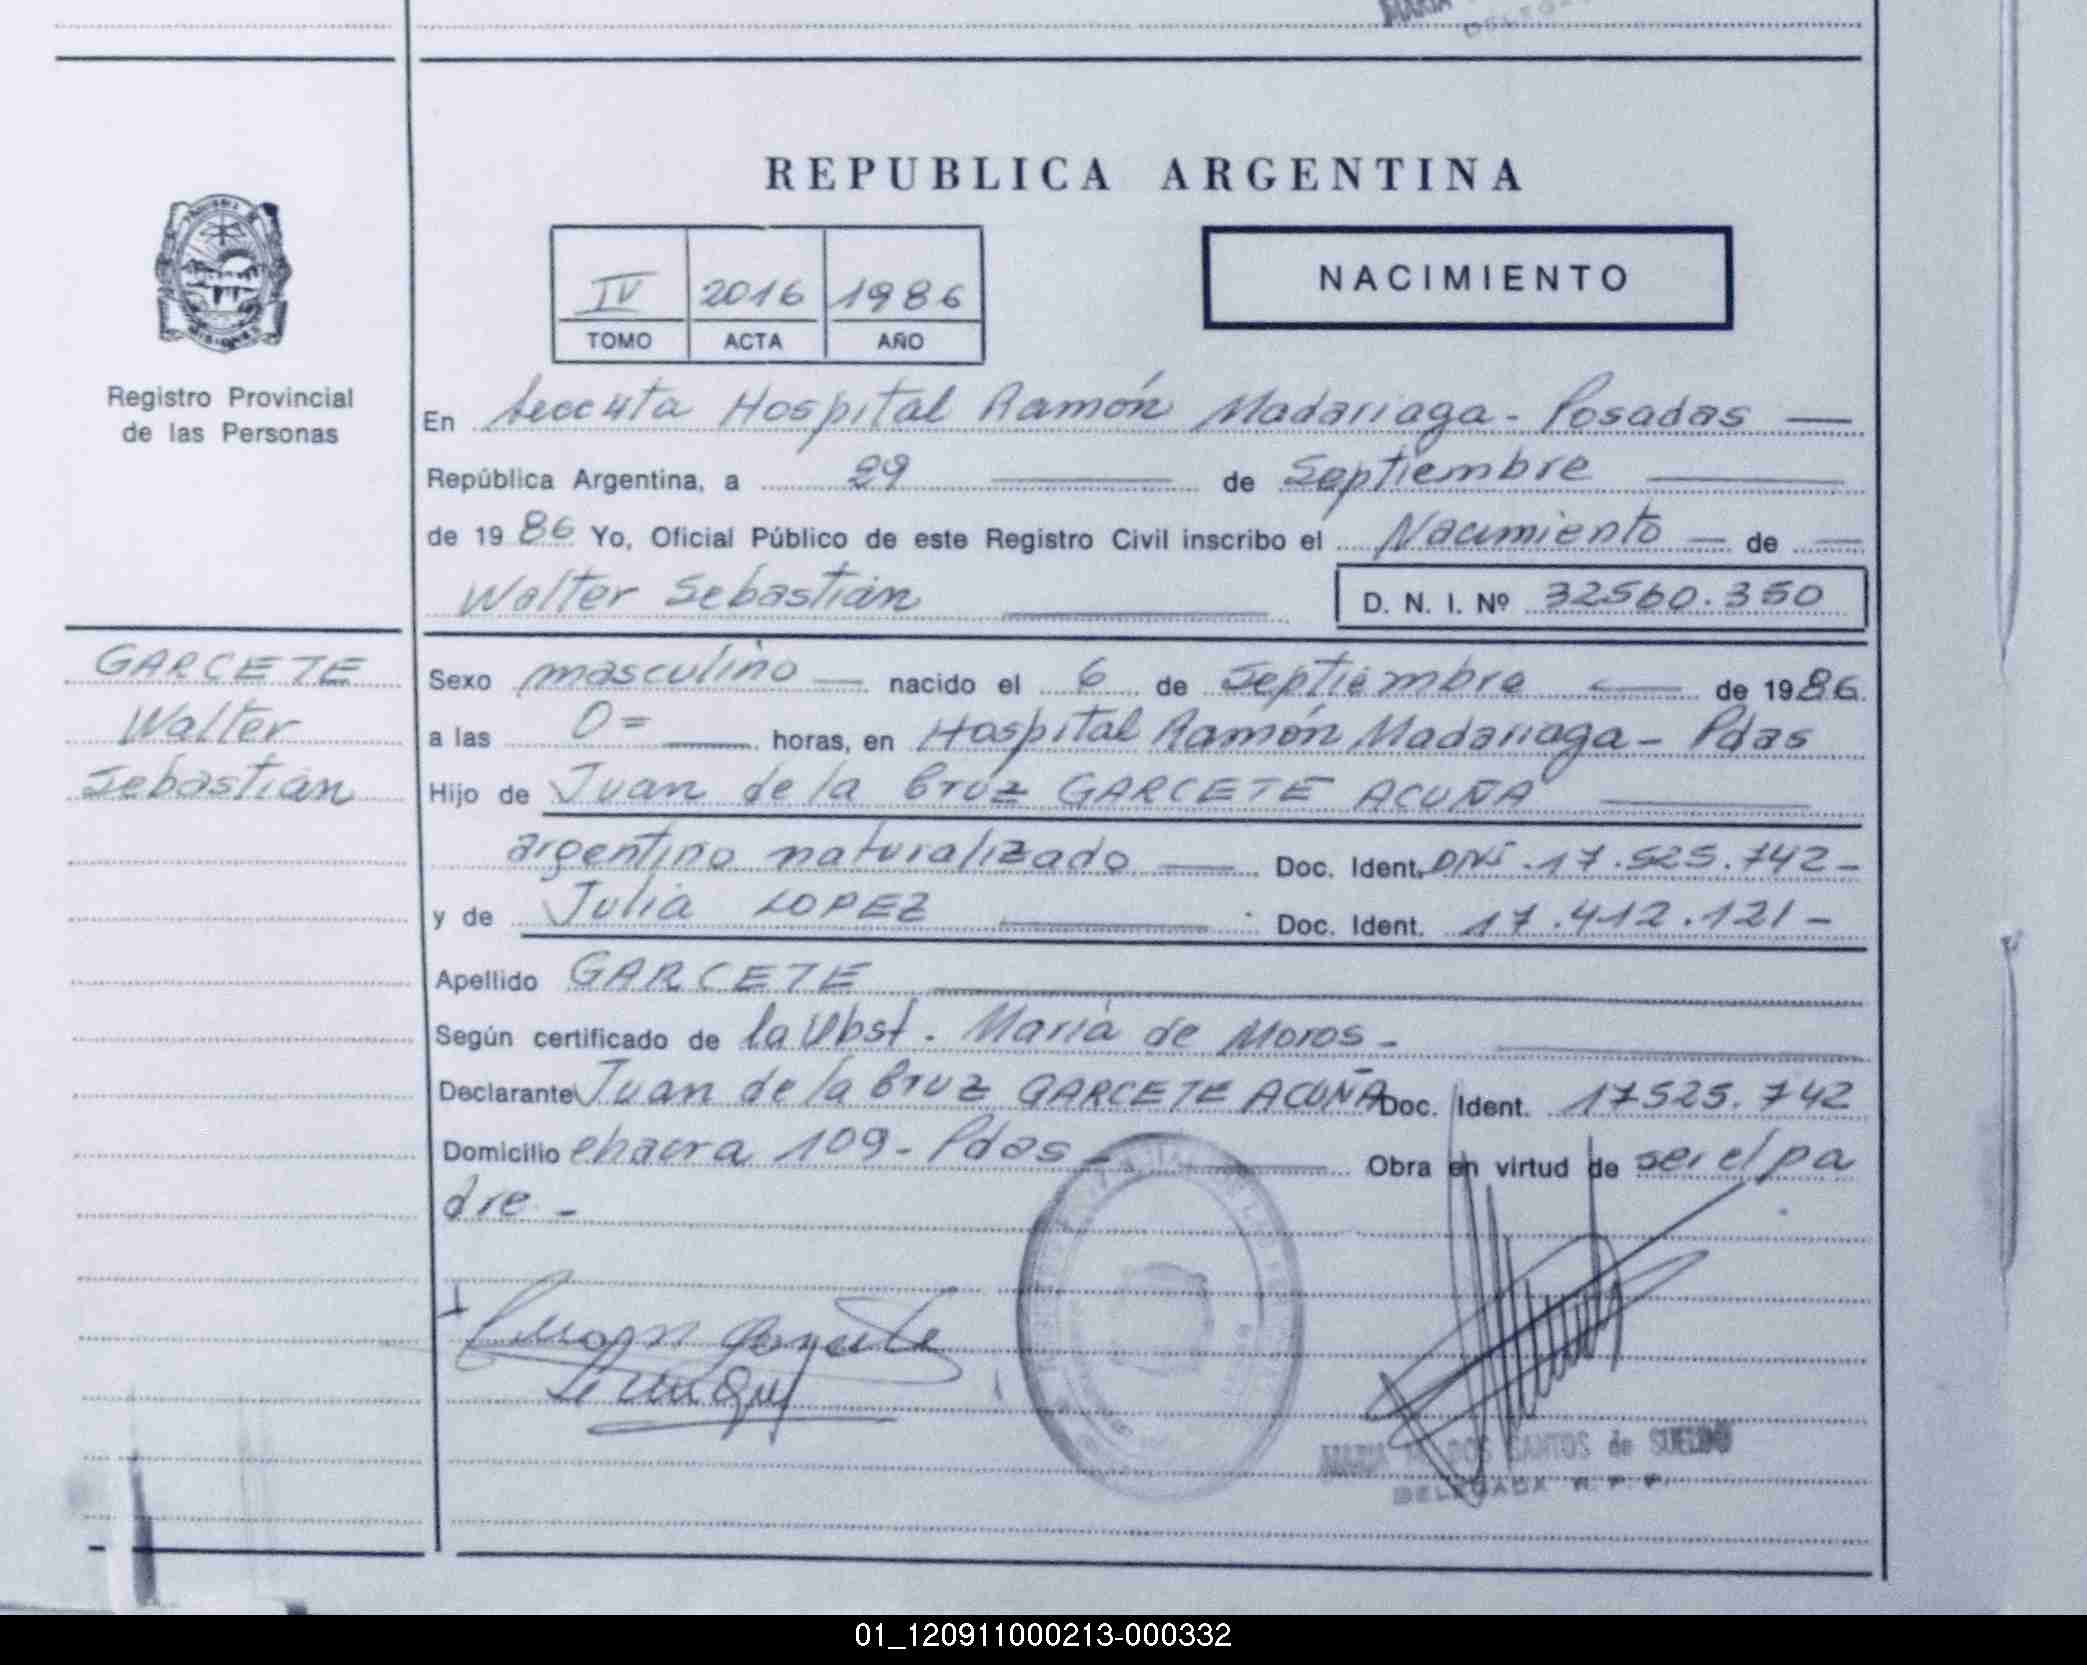 MARIA
DELEGA
REPUBLICA ARGENTINA
IV 2016 1986
TOMO ACTA AÑO
NACIMIENTO
Registro Provincial
de las Personas
En Hospital Ramón Madariaga - Posadas —
República Argentina, a 29 — de Septiembre —
de 1986 Yo, Oficial Público de este Registro Civil inscribo el Nacimiento — de —
Walter Sebastián — D. N. I. Nº 32560.350
GARCETE
Walter
Sebastián
Sexo masculino — nacido el 6 de Septiembre — de 1986.
a las 0= — horas, en Hospital Ramón Madariaga - Pdas
Hijo de Juan de la Cruz GARCETE ACUÑA —
argentino naturalizado — Doc. Ident. DNI. 17.525.742 -
y de Julia LOPEZ — Doc. Ident. 17.412.121 -
Apellido GARCETE —
Según certificado de la Obst. María de Moros - —
Declarante Juan de la Cruz GARCETE ACUÑA Doc. Ident. 17525.742
Domicilio chacra 109 - Pdas - — Obra en virtud de ser el pa
dre -
MARIA DOS SANTOS de SUELDO
DELEGADA R. P. P.
01_120911000213-000332